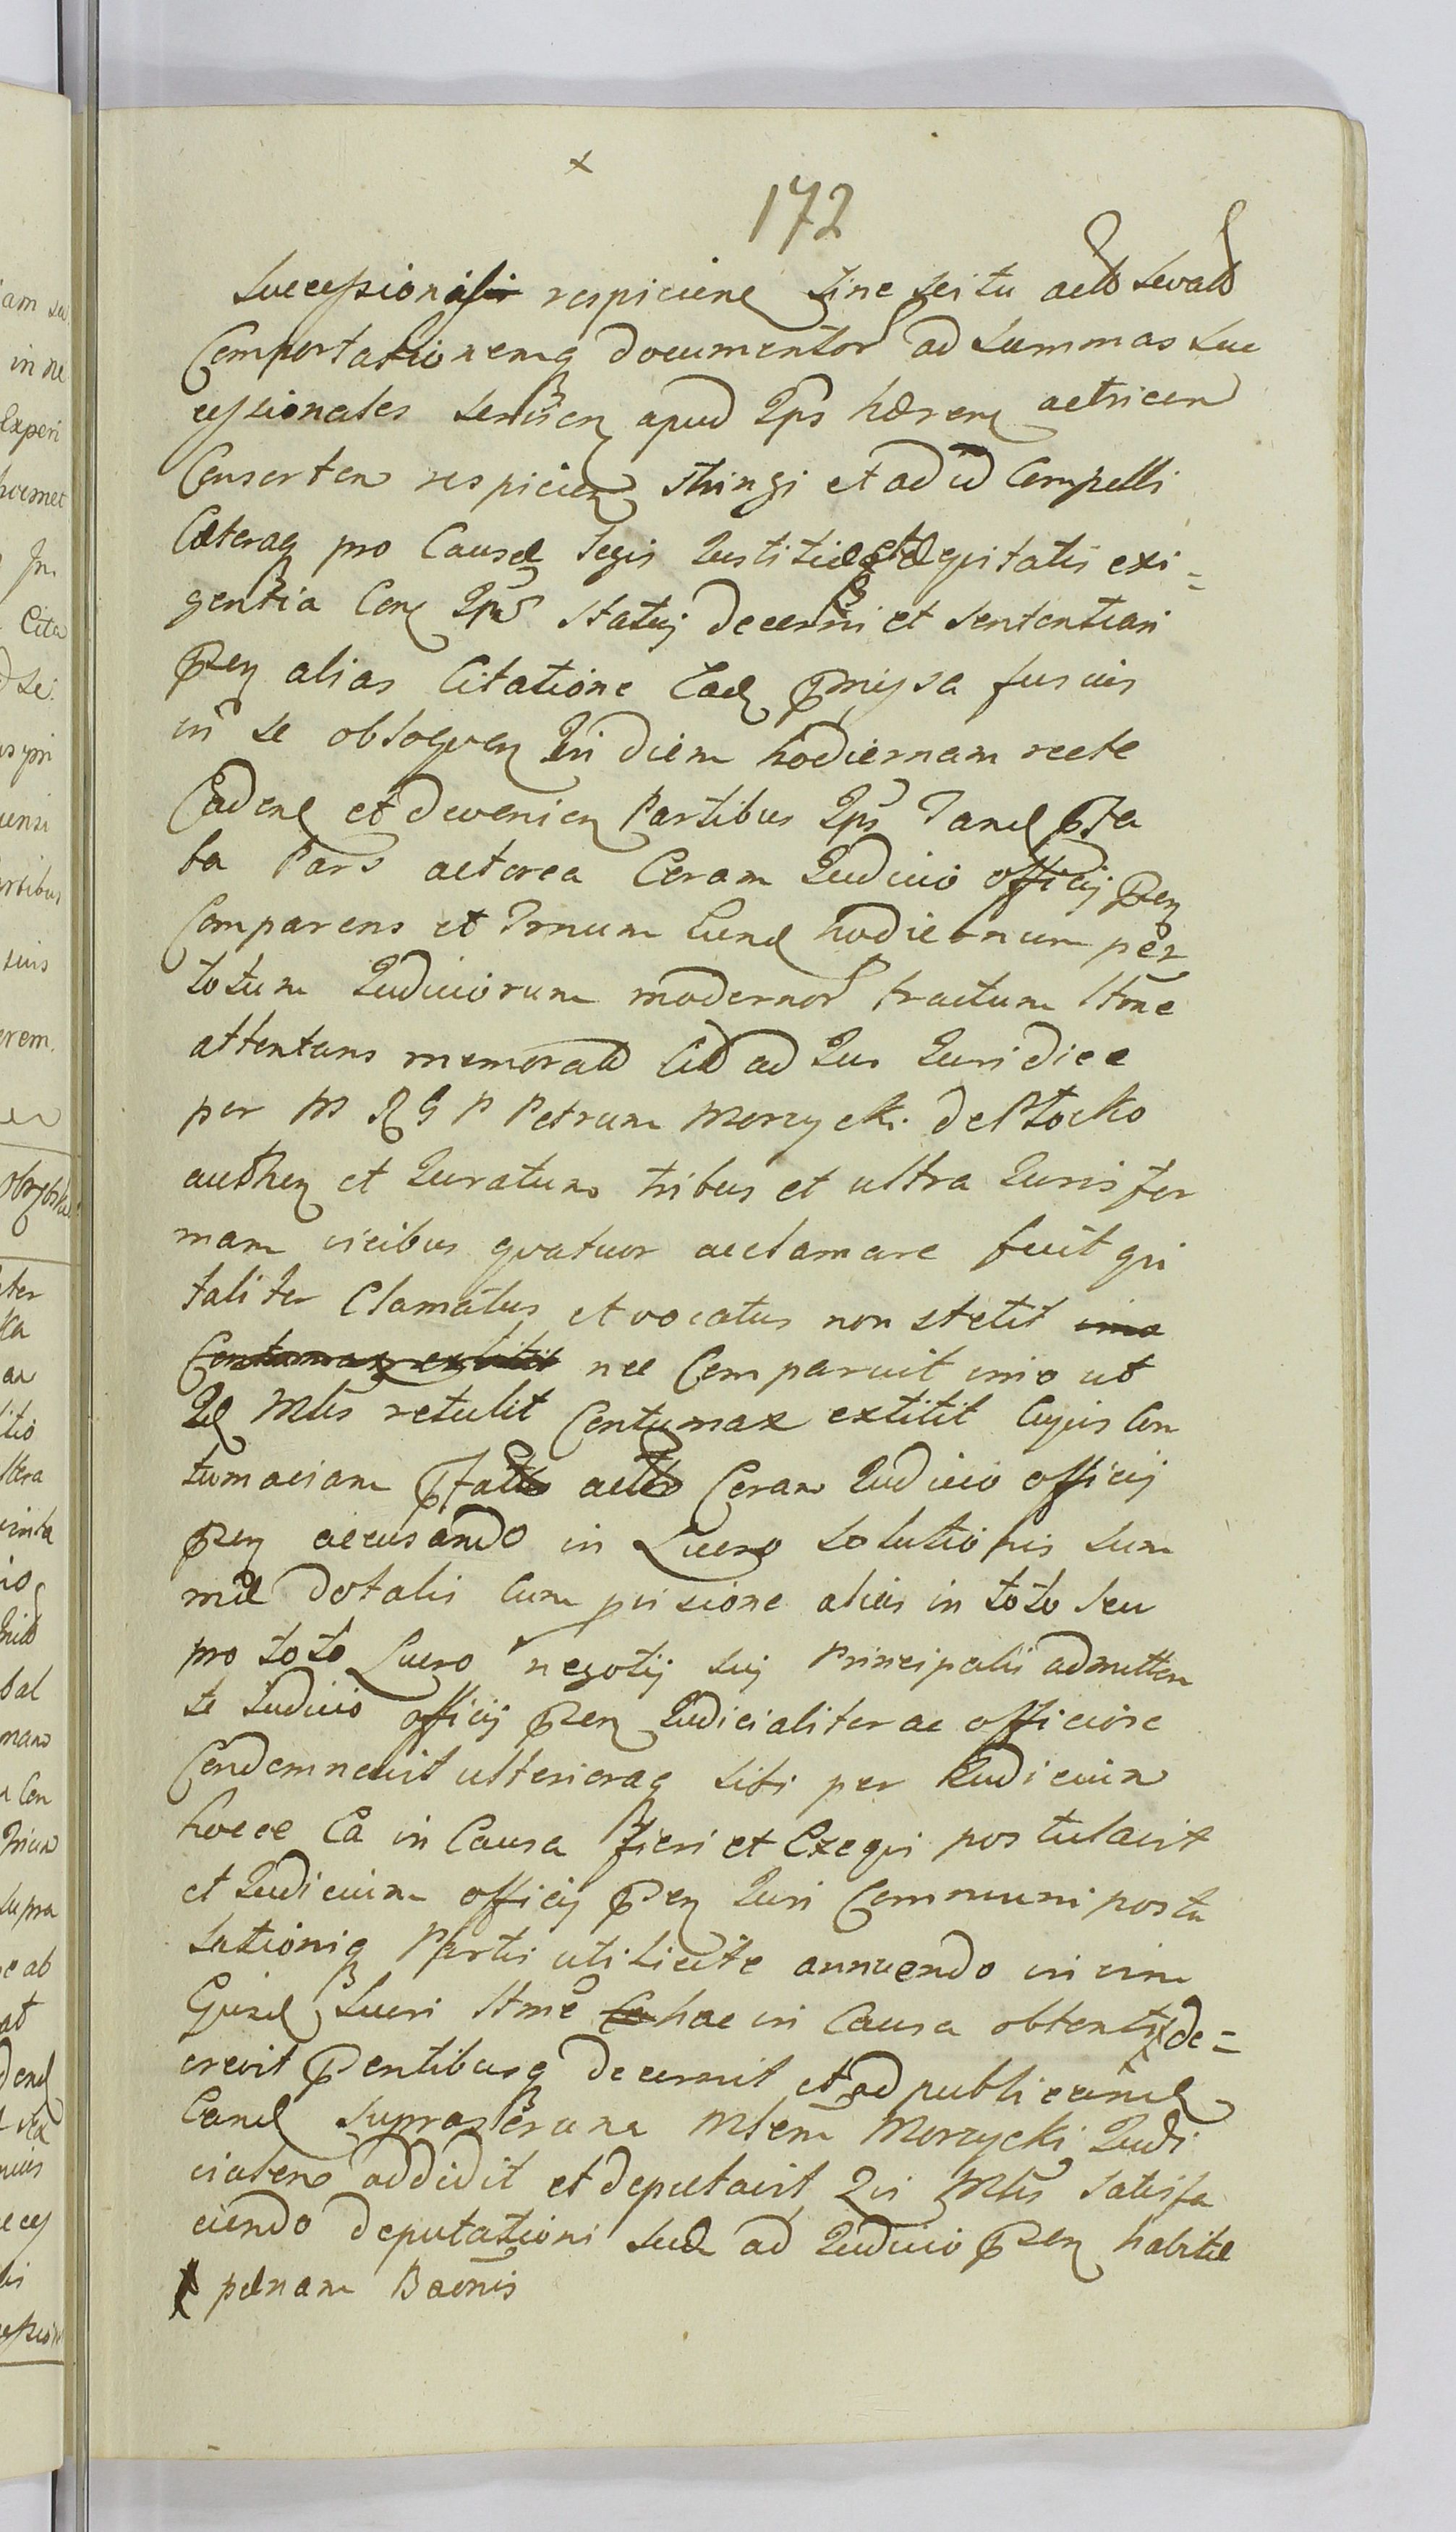 x
172
Successionalis respicienē sine scitu actō levatō
Comportationemq documentor ad summas suc
cessionales servien apud Ips hæren actricem
Consorten respicien stringi et ad id compelli
Cæteraq pro Causæ legis Iustitiæ et Æqvitatis exi=
gentia Con Ips Statuj decerni et sententiari
Pñ alias Citatione Eadē pmissa fusius
in se obloqven In diem hodiernam recte
Cadenē et devenien Partibus Ips Tandē Pta
ta Pars actorea Coram Iudicio officij Pñ
Comparens et Trnum hunē hodiernum per
totum Iudiciorum modernor tractum Itme
attentans memoratō Citō ad Ius Iuridice
per M R G P Petrum Morzycki de Płocko
authen et Iuratum tribus et ultra Iuris for
mam vicibus qvatuor acclamare fecit qvi
taliter Clamatus et vocatus non stetit imo
Contumax extitit nec Comparuit imo ut
Iē Mtis retulit Contumax extitit Cujus Con
tumaciam Ptatō actō Coram Iudicio officij
Pñ accusando in Lucro solutionis sum
mæ dotalis cum alias in toto seu
pro toto Lucro negotij suj Principalis admitten
te Iudicio officij Pñ Iudicialiter ac officiose
Condemnavit ulterioraq sibi per Iudicium
hocce Ea in Causa fieri et Exeqvi postulavit
et Iudicium officij Pñ Iuri Communi postu
lationiq Partis uti licite annuendo in vim
Lucri Itme hac in Causa obtenti de=
crevit Pentibusq decernit et ad publicandē
Eandē Suprascrum Mlem Morzycki Iudi
cialem addidit et deputavit Qvi Mtis satisfa
ciendo deputationi suæ ad Iudicio Pñ habitæ
pænam Baonis